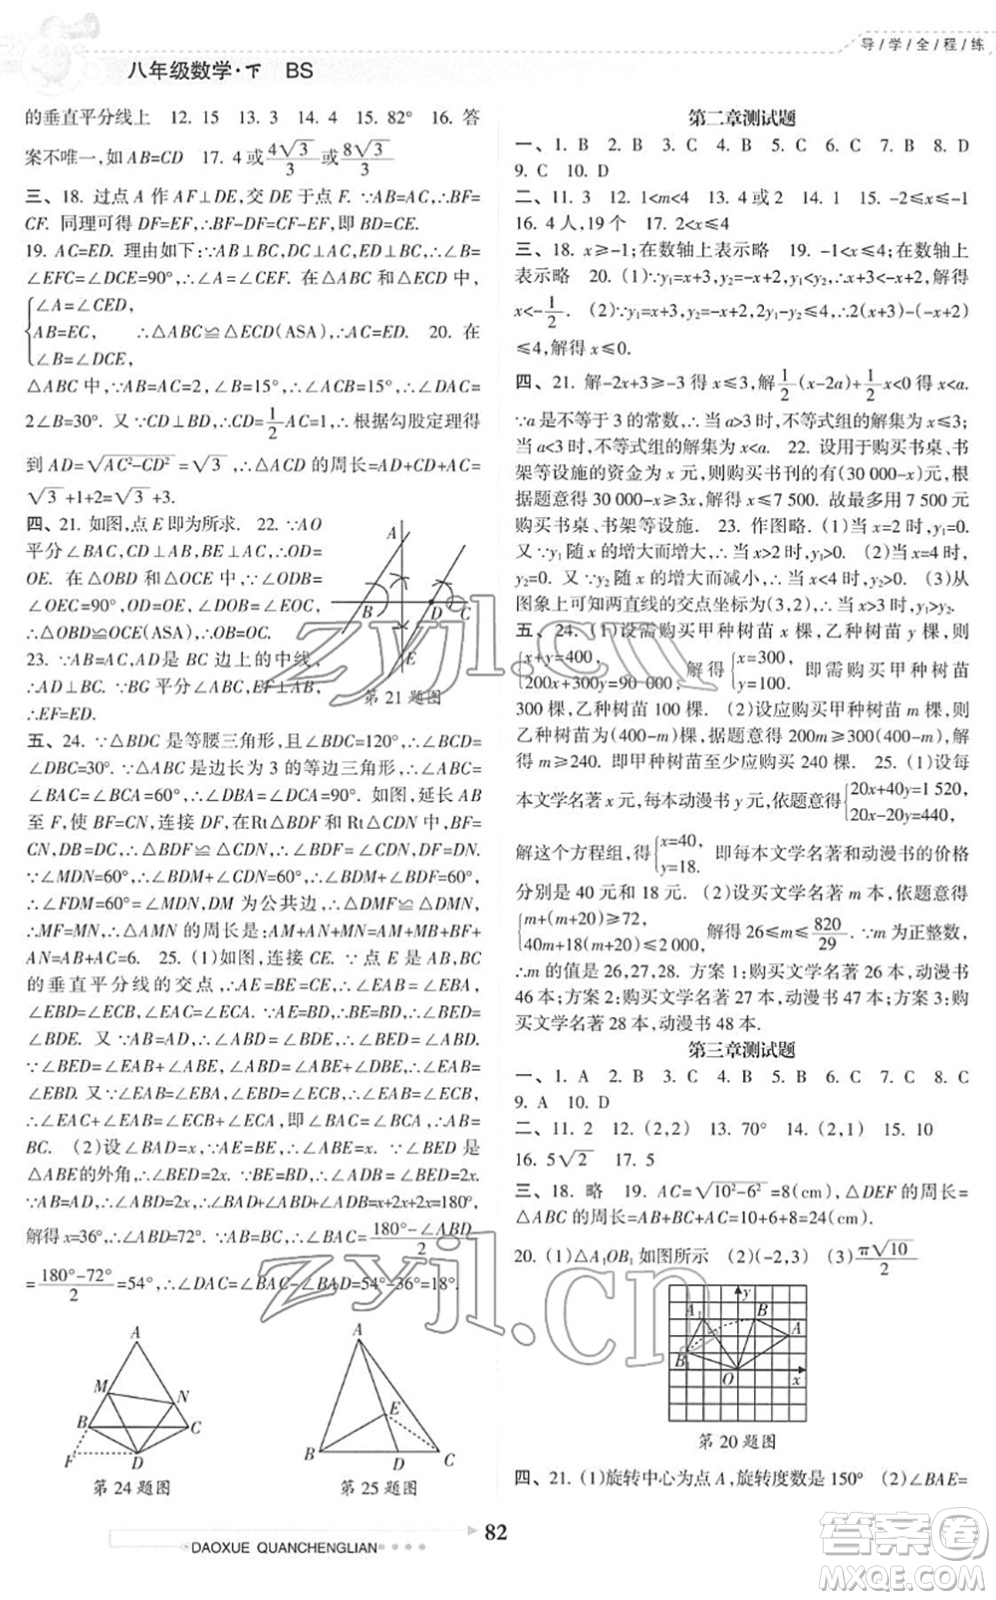 导/学/全/程/练
八年级数学·下 BS
的垂直平分线上 12. 15 13. 3 14. 4 15. 82° 16. 答
案不唯一,如 AB=CD 17. 4 或4√3/3或8√3/3
三、18. 过点 A 作 AF⊥DE,交 DE 于点 F. ∵AB=AC,∴BF=
CF. 同理可得 DF=EF,∴BF-DF=CF-EF,即 BD=CE.
19. AC=ED. 理由如下:∵AB⊥BC,DC⊥BC,EF⊥AC,∴∠B=
∠EFC=∠DCE=90°,∴∠A=∠CED. 在△ABC 和△ECD 中,
{∠A=∠CED,
AB=EC, ∴△ABC≌△ECD(ASA),∴AC=ED. 20. 在
∠B=∠DCE,
△ABC 中,∵AB=AC=2,∠B=15°,∴∠ACB=15°,∴∠DAC=
2∠B=30°. 又∵CD⊥BD,∴CD=1/2AC=1,∴根据勾股定理得
到 AD=√AC²-CD²=√3,∴△ACD 的周长=AD+CD+AC=
√3+1+2=√3+3.
四、21. 如图,点 E 即为所求. 22. ∵AO
平分∠BAC,CD⊥AB,BE⊥AC,∴OD=
OE. 在△OBD 和△OCE 中,∵∠BDO=
∠OEC=90°,OD=OE,∠DOB=∠EOC,
∴△OBD≌OCE(ASA),∴OB=OC.
23. ∵AB=AC,AD是 BC 边上的中线,
∴AD⊥BC. ∵BG 平分∠ABC,EF⊥AB,
∴EF=ED.
A
B
D
C
E
第 21 题图
五、24. ∵△BDC 是等腰三角形,且∠BDC=120°,∴∠BCD=
∠DBC=30°. ∵△ABC 是边长为 3 的等边三角形,∴∠ABC=
∠BAC=∠BCA=60°,∴∠DBA=∠DCA=90°. 如图,延长 AB
至 F,使 BF=CN,连接 DF,在Rt△BDF 和Rt△CDN 中,BF=
CN,DB=DC,∴△BDF≌△CDN,∴∠BDF=∠CDN,DF=DN.
∵∠MDN=60°,∴∠BDM+∠CDN=60°,∴∠BDM+∠BDF=60°,
∴∠FDM=60°=∠MDN,DM 为公共边,∴△DMF≌△DMN,
∴MF=MN,∴△AMN 的周长是:AM+AN+MN=AM+MB+BF+
AN=AB+AC=6. 25. (1)如图,连接 CE. ∵点 E 是 AB,BC
的垂直平分线的交点,∴AE=BE=EC,∴∠EAB=∠EBA,
∠EBD=∠ECB,∠EAC=∠ECA. ∵AD=AB,∴∠ABD=∠ADB.
∵∠BED=∠EAB+∠ABE,∠ADB=∠CAD+∠ACB. 又∵
∠BED=∠EAB+∠ABE,∠ABD=∠ABE+∠EBD,∴∠EAB=
∠EBD. 又∵∠EAB=∠ABE,∠EBD=∠ECB,∠EAC=∠ECA,
∴∠EAC+∠EAB=∠ECB+∠ECA,即∠BAC=∠BCA,∴AB=
BC. (2)设∠BAD=x. ∵AE=BE,∴∠ABE=x. ∵∠BED 是
△ABE的外角,∴∠BED=2x. ∵AB=AD,∴∠ADB=∠BED=2x.
∵AB=AD,∴∠ABD=2x,∴∠BAD+∠ABD+∠ADB=x+2x+2x=180°,
解得 x=36°,∴∠ABD=72°. ∵AB=BC,∴∠BAC=180°-∠ABD/2
=180°-72°/2=54°,∴∠DAC=∠BAC-∠BAD=54°-36°=18°.
A
M
N
B
C
F
D
第 24 题图
A
E
B
D
C
第 25 题图
第二章测试题
一、1. B 2. B 3. C 4. B 5. A 6. C 7. B 8. D
9. C 10. D
二、11. 3 12. 1<m<4 13. 4 或 2 14. 1 15. -2≤x≤-1
16. 4 人,19 个 17. 2<x≤4
三、18. x≥-1;在数轴上表示略 19. -1<x≤4;在数轴上
表示略 20. (1)∵y₁=x+3,y₂=-x+2,y₁<y₂,∴x+3<-x+2,解得
x<-1/2. (2)∵y₁=x+3,y₂=-x+2,2y₁-y₂≤4,∴2(x+3)-(-x+2)
≤4,解得 x≤0.
四、21. 解-2x+3≥-3 得 x≤3,解1/2(x-2a)+1/2x<0 得 x<a.
∵a 是不等于 3 的常数,∴当 a>3 时,不等式组的解集为 x≤3;
当 a<3 时,不等式组的解集为 x<a. 22. 设用于购买书桌、书
架等设施的资金为 x 元,则购买书刊的有(30 000-x)元,根
据题意得 30 000-x≥3x,解得 x≤7 500. 故最多用 7 500 元
购买书桌、书架等设施. 23. 作图略. (1)当 x=2 时,y₁=0.
又∵y₁随 x 的增大而增大,∴当 x>2 时,y₁>0. (2)当 x=5 时,
y₂=0. 又∵y₂随 x 的增大而减小,∴当 x>5 时,y₂<0. (3)从
图象上可知两直线的交点坐标为(3,2),∴当 x>3 时,y₁>y₂.
五、24. (1)设需购买甲种树苗 x 棵,乙种树苗 y 棵,则
{x+y=400,
200x+300y=90 000, 解得{x=300,
y=100. 即需购买甲种树苗
300 棵,乙种树苗 100 棵. (2)设应购买甲种树苗 m 棵,则
乙种树苗为(400-m)棵,根据题意得 200m≥300(400-m),解
得 m≥240. 即甲种树苗至少应购买 240 棵. 25. (1)设每
本文学名著 x 元,每本动漫书 y 元,依题意得{20x+40y=1 520,
20x-20y=440,
解这个方程组,得{x=40,
y=18. 即每本文学名著和动漫书的价格
分别是 40 元和 18 元. (2)设买文学名著 m 本,依题意得
{m+(m+20)≥72,
40m+18(m+20)≤2 000, 解得 26≤m≤820/29. ∵m 为正整数,
∴m 的值是 26,27,28. 方案 1:购买文学名著 26 本,动漫书
46 本;方案 2:购买文学名著 27 本,动漫书 47 本;方案 3:购
买文学名著 28 本,动漫书 48 本.
第三章测试题
一、1. A 2. B 3. C 4. B 5. B 6. C 7. C 8. C
9. A 10. D
二、11. 2 12. (2,2) 13. 70° 14. (2,1) 15. 10
16. 5√2 17. 5
三、18. 略 19. AC=√10²-6²=8(cm),△DEF 的周长=
△ABC 的周长=AB+BC+AC=10+6+8=24(cm).
20. (1)△A₁OB₁如图所示 (2)(-2,3) (3)π√10/2
y
A₁
B
A
B₁
O
x
第 20 题图
四、21. (1)旋转中心为点 A,旋转度数是 150° (2)∠BAE=
82
DAOXUE QUANCHENGLIAN
zyjl.cn
zyjl.cn
答案圈
MXQE.COM